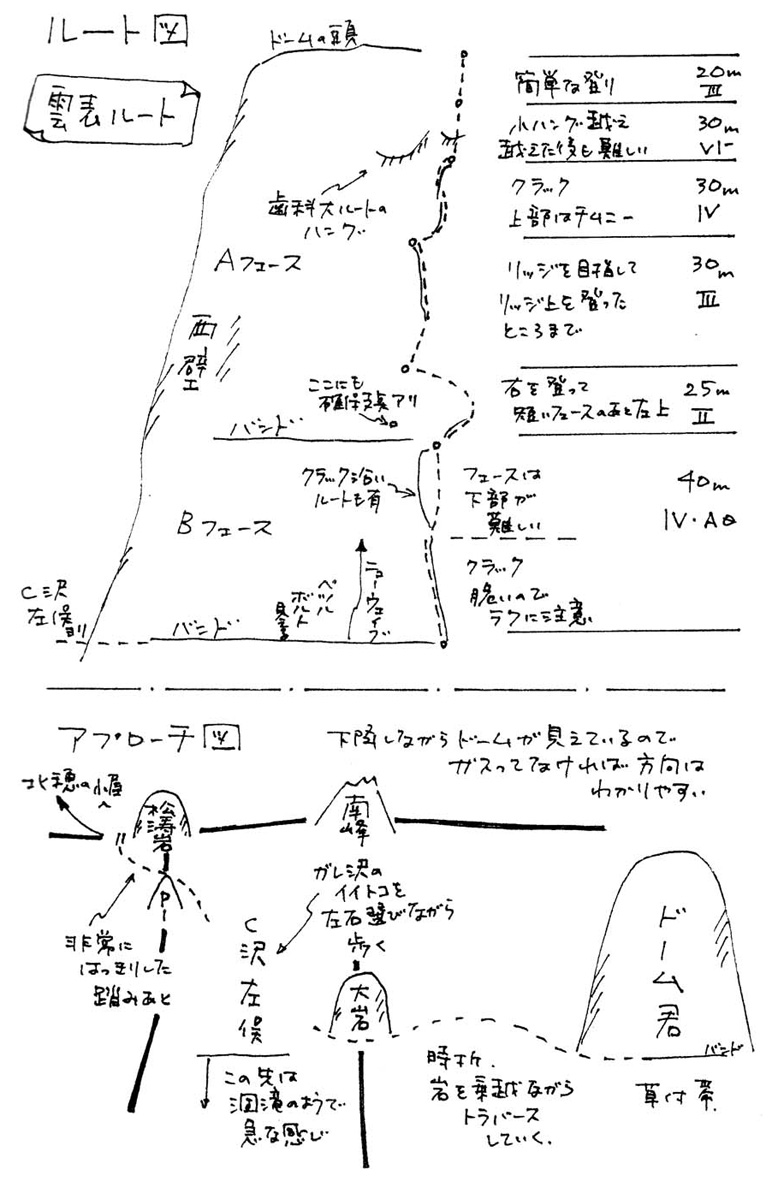 ルート図
雲表ルート
ドームの頭
簡単な登り 20m
III
小ハング越え 30m
越えた後も難しい VI-
クラック 30m
上部はチムニー IV
歯科大ルートの
ハング
Aフェース
西壁
リッジを目指して 30m
リッジ上を登った III
ところまで
ここにも
確保支点アリ
バンド
右を登って 25m
短いフェースのあと左上 II
クラック沿い
ルートも有
Bフェース
フェースは 40m
下部が
難しい IV・A0
クラック
脆いので
ラクに注意
C沢
左俣
バンド
ペツル
ボルト
ニューウェイブ
アプローチ図
下降しながらドームが見えているので
ガスってなければ方向は
わかりやすい
北穂の小屋へ
松濤岩
南峰
P
非常に
はっきりした
踏みあと
ガレ沢の
イイトコを
左右選びながら
歩く
C沢左俣
大岩
ドーム君
バンド
草付帯
この先は
涸滝のようで
急な感じ
時折、
岩を乗越ながら
トラバース
していく。